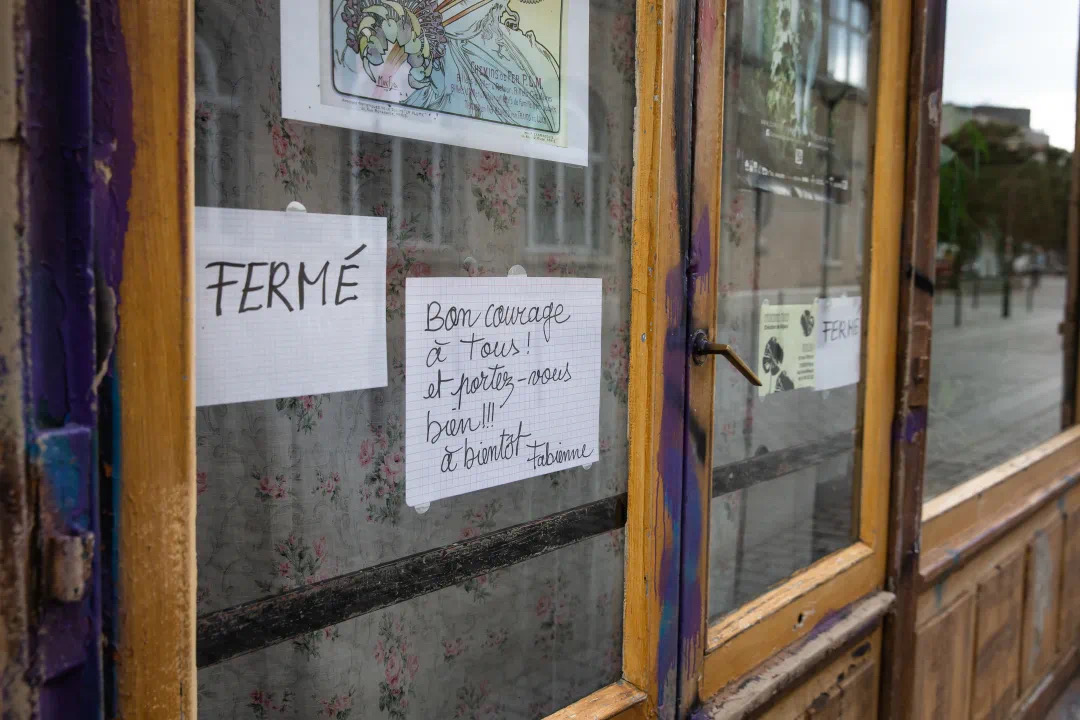 CHEMINS DE FER P.L.M.
FERMÉ
Bon courage
à Tous!
et portez-vous
bien!!!
à bientôt Fabienne
FERMÉ